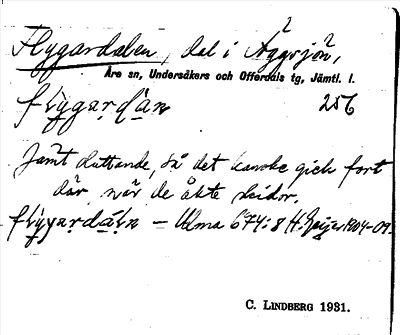 Flygardalen, dal i Äggsjön,
Åre sn, Undersåkers och Offerdals tg, Jämtl. l.
flygardàn 256
Jämt sluttande, så det kanske gick fort
där, när de åkte skidor.
flygardáln – Ulma 674:8 H. Geijer 1904-09.
C. LINDBERG 1931.